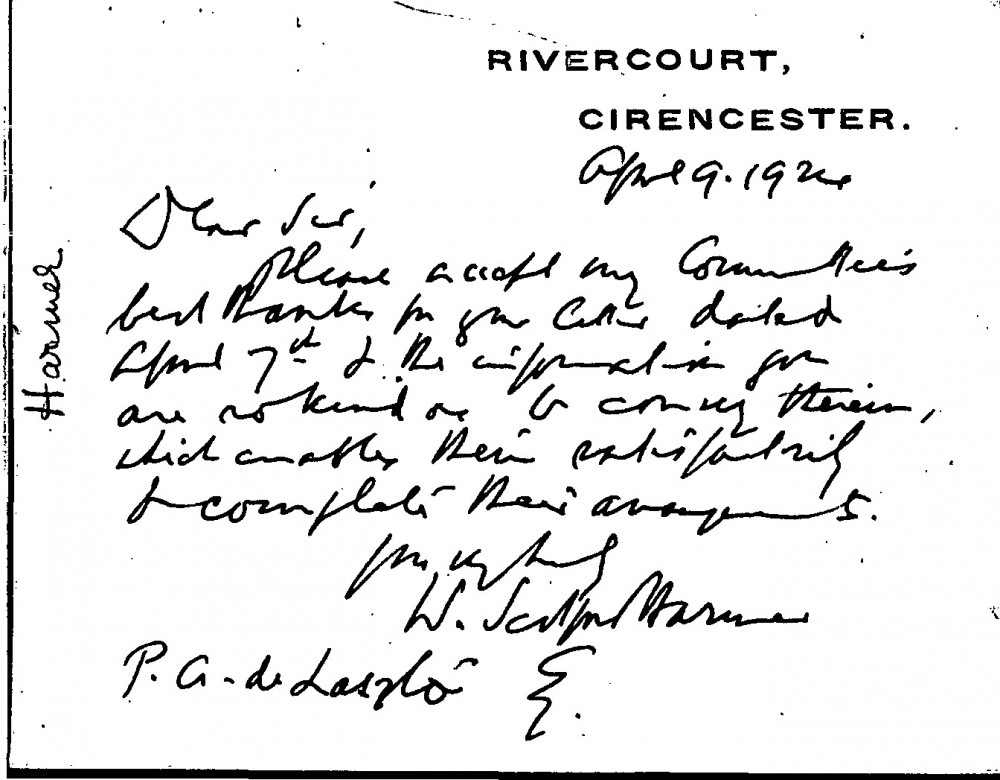 RIVERCOURT,
CIRENCESTER.
April 9. 192
Dear Sir,
Please accept my Committee's
best thanks for your letter dated
April 7th & the information you
are so kind as to convey therein,
which enables them satisfactorily
to complete their arrangements.
Yours very truly
W. Scotford Harmer
P. A. de László
Harmer